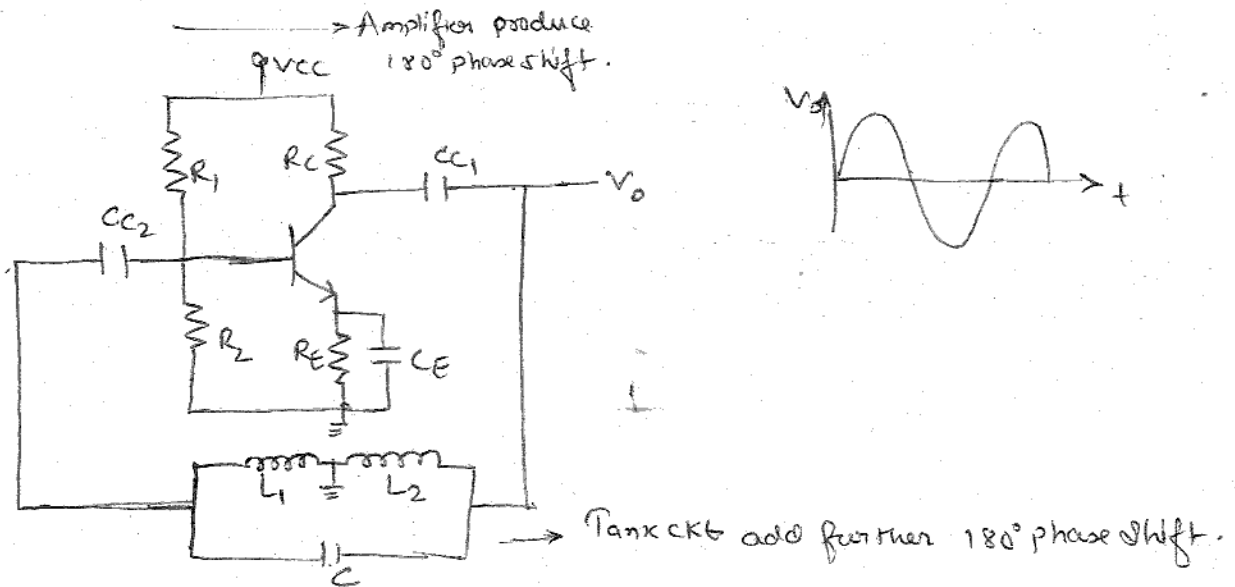 Amplifier produce
180° phase shift.
VCC
R1
RC
CC1
Vo
CC2
R2
RE
CE
L1
L2
C
Tank CKt add further 180° phase shift.
Vo
t